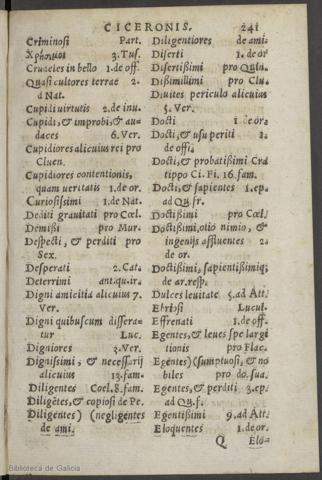 CICERONIS. 241
Criminosi Part.
Χρήσιμοι 3.Tus.
Crudeles in bello 1.de off.
Quasi cultores terrae 2.
d Nat.
Cupidi uirtutis 2.de inu.
Cupidi, & improbi, & au-
daces 6.Ver.
Cupidiores alicuius rei pro
Cluen.
Cupidiores contentionis,
quam ueritatis 1.de or.
Curiosißimi 1.de Nat.
Dediti grauitati pro Cœl.
Demißi pro Mur.
Despecti, & perditi pro
Sex.
Desperati 2.Cat.
Deterrimi ant.qu.ir.
Digni amicitia alicuius 7.
Ver.
Digni quibuscum dissera-
tur Luc.
Digniores 3.Ver.
Dignissimi, & necessarij
alicuius 13.fam.
Diligentes Coel.8.fam.
Diligẽtes, & copiosi de Pe.
Diligentes) (negligentes
de ami.
Diligentiores de ami.
Diserti 1.de or
Disertißimi pro Quin.
Dißimillimi pro Clu.
Diuites periculo alicuius
5.Ver.
Docti 1.de or.
Docti, & usu periti 1.
de offi.
Docti, & probatißimi Cra
tippo Ci. Fi. 16.fam.
Docti, & sapientes 1.ep.
ad Qu.fr.
Doctißimi pro Cœl.
Doctißimi, otio nimio, &
ingenijs affluentes 2.
de or.
Doctißimi, sapientißimiq;
de ar.resp.
Dulces leuitate 5.ad Att.
Ebriosi Lucul.
Effrenati 1.de off.
Egentes, & leues spe largi
tionis pro Flac.
Egentes) (sumptuosi, & no
biles pro do.sua.
Egentes, & perditi 3.ep.
ad Qu.f.
Egentißimi 9.ad Att.
Eloquentes 1.de or.
Q Elo-
Biblioteca de Galicia